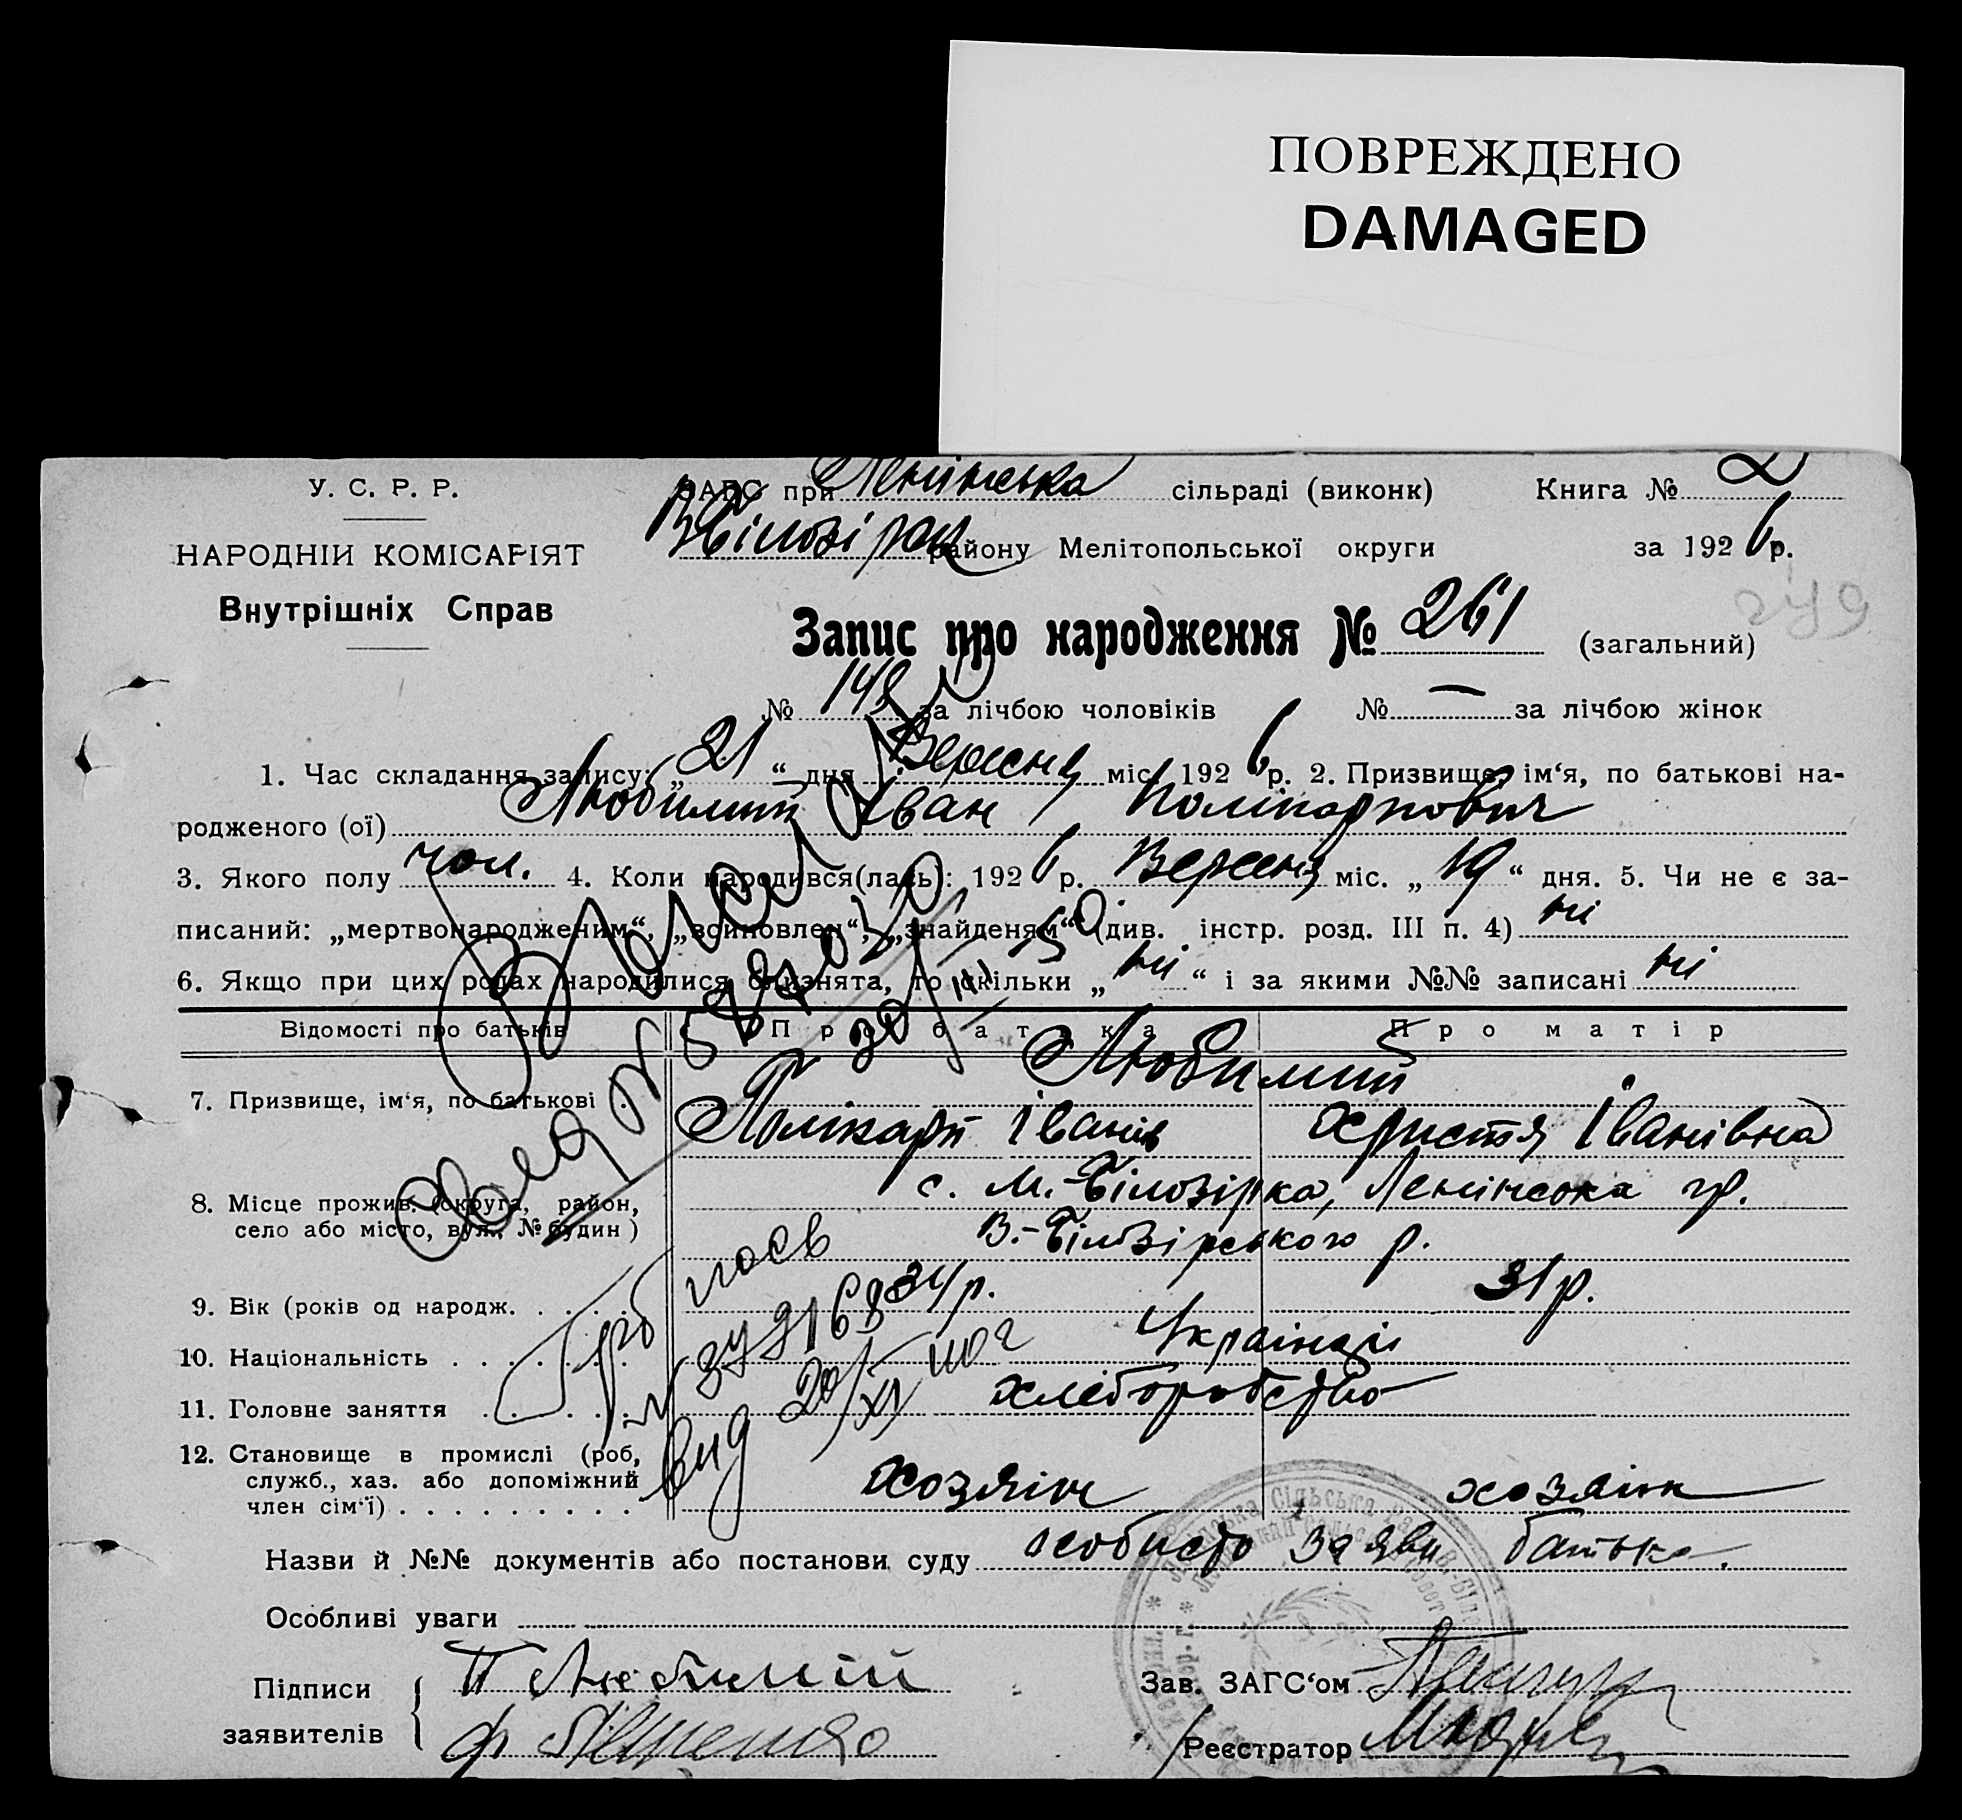 ПОВРЕЖДЕНО
DAMAGED
У. С. Р. Р.
ЗАГС при Ленінська сільраді (виконк) Книга № 2
району Мелітопольської округи за 1926 р.
НАРОДНІЙ КОМІСАРІЯТ
Внутрішніх Справ
Запис про народження № 261 (загальний)
279
№ 148 за лічбою чоловіків № — за лічбою жінок
1. Час складання запису: „21“ дня Вересня міс. 1926 р. 2. Призвище, ім‘я, по батькові на-
родженого (ої) Любимий Іван Полікарпович
3. Якого полу чол. 4. Коли народився(лась): 1926 р. Вересня міс. „19“ дня. 5. Чи не є за-
писаний: „мертвонародженим“, „всиновлен“, „знайденям“ (див. інстр. розд. III п. 4) ні
6. Якщо при цих родах народилися близнята, то скільки „ні“ і за якими №№ записані ні
Відомості про батьків Про батька Про матір
Любимий
7. Призвище, ім‘я, по батькові . Полікарп Іванів Христя Іванівна
8. Місце прожив. (округа, район, с. М.-Білозірка, Ленінська гр.
село або місто, вул., № будин) В.-Білозірського р.
9. Вік (років од народж. . . . . 34 р. 31 р.
10. Національність . . . . . . . Українці
11. Головне заняття . . . . . . хліборобство
12. Становище в промислі (роб,
служб., хаз. або допоміжний хозяін хозяін
член сім‘ї) . . . . . . . . .
Назви й №№ документів або постанови суду особисто заяви батька.
Особливі уваги
Підписи П Любимий Зав. ЗАГС‘ом
заявителів Реєстратор